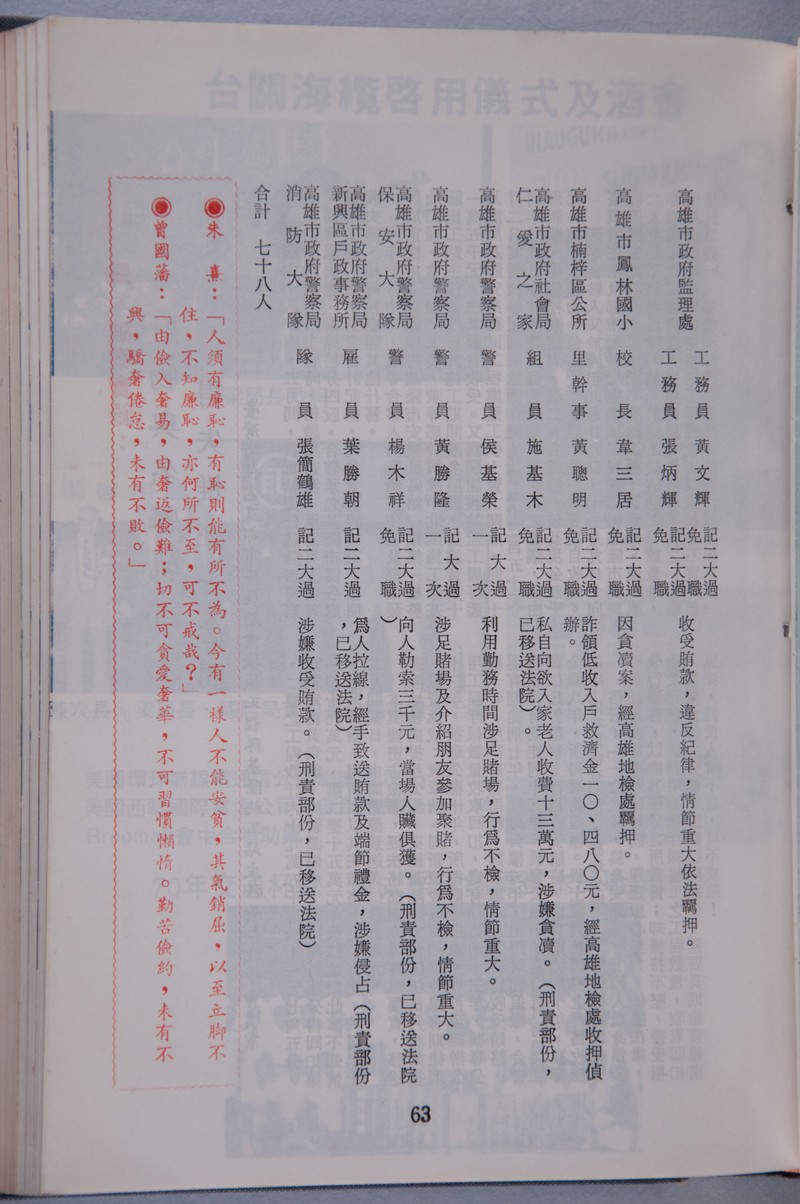 高雄市政府監理處　工務員　黃文輝　記二大過免職　收受賄款，違反紀律，情節重大依法羈押。
工務員　張炳輝　記二大過免職
高雄市鳳林國小　校長　韋三居　記二大過免職　因貪瀆案，經高雄地檢處羈押。
高雄市楠梓區公所　里幹事　黃聰明　記二大過免職　詐領低收入戶救濟金一〇、四八〇元，經高雄地檢處收押偵
辦。
高雄市政府社會局仁愛之家　組員　施基木　記二大過免職　私自向欲入家老人收費十三萬元，涉嫌貪瀆。（刑責部份，
已移送法院）。
高雄市政府警察局　警員　侯基榮　記一大過一次　利用勤務時間涉足賭場，行爲不檢，情節重大。
高雄市政府警察局　警員　黃勝隆　記一大過一次　涉足賭場及介紹朋友參加聚賭，行爲不檢，情節重大。
高雄市政府警察局保安大隊　警員　楊木祥　記二大過免職　向人勒索三千元，當場人贓俱獲。（刑責部份，已移送法院
）
高雄市政府警察局新興區戶政事務所　雇員　葉勝朝　記二大過　爲人拉線，經手致送賄款及端節禮金，涉嫌侵占（刑責部份
，已移送法院）
高雄市政府警察局消防大隊　隊員　張簡鶴雄　記二大過　涉嫌收受賄款。（刑責部份，已移送法院）
合計　七十八人
◉朱熹：「人須有廉恥，有恥則能有所不為。今有一樣人不能安貧，其氣銷屈，以至立脚不
住，不知廉恥，亦何所不至，可不戒哉？」
◉曾國藩：「由儉入奢易，由奢返儉難；切不可貪愛奢華，不可習慣懶惰。勤苦儉約，未有不
興，驕奢倦怠，未有不敗。」
63